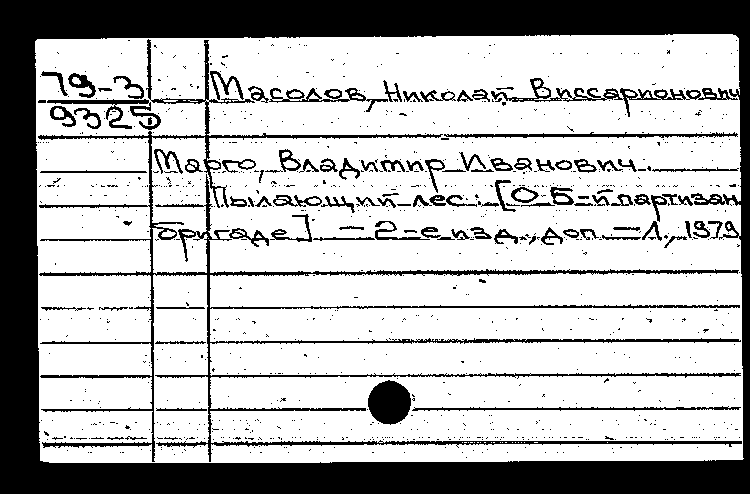 79-3
9325
Масолов, Николай Виссарионович
Марго, Владимир Иванович.
Пылающий лес: [О 5-й партизан.
бригаде] — 2-е изд., доп. — Л., 1979